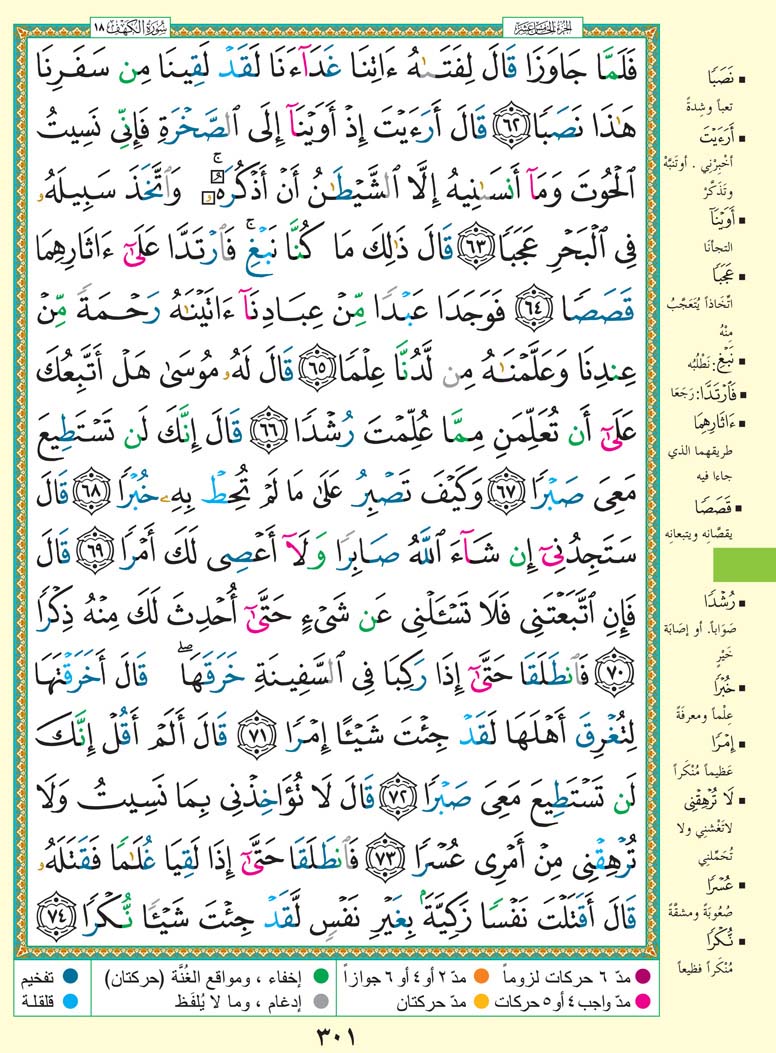 الجزء الخامس عشر
سورة الكهف ١٨
فَلَمَّا جَاوَزَا قَالَ لِفَتَىٰهُ ءَاتِنَا غَدَآءَنَا لَقَدْ لَقِينَا مِن سَفَرِنَا
هَٰذَا نَصَبًا ٦٢ قَالَ أَرَءَيْتَ إِذْ أَوَيْنَآ إِلَى ٱلصَّخْرَةِ فَإِنِّى نَسِيتُ
ٱلْحُوتَ وَمَآ أَنسَىٰنِيهُ إِلَّا ٱلشَّيْطَٰنُ أَنْ أَذْكُرَهُۥ ۚ وَٱتَّخَذَ سَبِيلَهُۥ
فِى ٱلْبَحْرِ عَجَبًا ٦٣ قَالَ ذَٰلِكَ مَا كُنَّا نَبْغِ ۚ فَٱرْتَدَّا عَلَىٰٓ ءَاثَارِهِمَا
قَصَصًا ٦٤ فَوَجَدَا عَبْدًا مِّنْ عِبَادِنَآ ءَاتَيْنَٰهُ رَحْمَةً مِّنْ
عِندِنَا وَعَلَّمْنَٰهُ مِن لَّدُنَّا عِلْمًا ٦٥ قَالَ لَهُۥ مُوسَىٰ هَلْ أَتَّبِعُكَ
عَلَىٰٓ أَن تُعَلِّمَنِ مِمَّا عُلِّمْتَ رُشْدًا ٦٦ قَالَ إِنَّكَ لَن تَسْتَطِيعَ
مَعِىَ صَبْرًا ٦٧ وَكَيْفَ تَصْبِرُ عَلَىٰ مَا لَمْ تُحِطْ بِهِۦ خُبْرًا ٦٨ قَالَ
سَتَجِدُنِىٓ إِن شَآءَ ٱللَّهُ صَابِرًا وَلَآ أَعْصِى لَكَ أَمْرًا ٦٩ قَالَ
فَإِنِ ٱتَّبَعْتَنِى فَلَا تَسْـَٔلْنِى عَن شَىْءٍ حَتَّىٰٓ أُحْدِثَ لَكَ مِنْهُ ذِكْرًا
٧٠ فَٱنطَلَقَا حَتَّىٰٓ إِذَا رَكِبَا فِى ٱلسَّفِينَةِ خَرَقَهَا ۖ قَالَ أَخَرَقْتَهَا
لِتُغْرِقَ أَهْلَهَا لَقَدْ جِئْتَ شَيْـًٔا إِمْرًا ٧١ قَالَ أَلَمْ أَقُلْ إِنَّكَ
لَن تَسْتَطِيعَ مَعِىَ صَبْرًا ٧٢ قَالَ لَا تُؤَاخِذْنِى بِمَا نَسِيتُ وَلَا
تُرْهِقْنِى مِنْ أَمْرِى عُسْرًا ٧٣ فَٱنطَلَقَا حَتَّىٰٓ إِذَا لَقِيَا غُلَٰمًا فَقَتَلَهُۥ
قَالَ أَقَتَلْتَ نَفْسًا زَكِيَّةًۢ بِغَيْرِ نَفْسٍ لَّقَدْ جِئْتَ شَيْـًٔا نُّكْرًا ٧٤
نَصَبًا
تعباً وشِدةً
أَرَءَيْتَ
أخبِرْني . أو تَنَبَّهْ
وتَذَكَّرْ
أَوَيْنَآ
التجأنا
عَجَبًا
اتّخاذاً يُتَعَجَّبُ
مِنْهُ
نَبْغِ: نَطْلُبُه
فَٱرْتَدَّا: رَجَعَا
ءَاثَارِهِمَا
طريقهما الذي
جاءا فيه
قَصَصًا
يقصّانِه ويتبعانِه
رُشْدًا
صَوَاباً. أو إصَابَة
خَيْرٍ
خُبْرًا
عِلْماً ومعرفَةً
إِمْرًا
عَظيماً مُنْكَراً
لَا تُرْهِقْنِى
لاتَغْشني ولا
تُحَمِّلني
عُسْرًا
صُعُوبَةً ومشقَّةً
نُّكْرًا
مُنْكَراً فظيعاً
مدّ ٦ حركات لزوماً
مدّ ٢ أو ٤ أو ٦ جوازاً
إخفاء ، ومواقع الغُنَّة (حركتان)
تفخيم
مدّ واجب ٤ أو ٥ حركات
مدّ حركتان
إدغام ، وما لا يُلفَظ
قلقلة
٣٠١